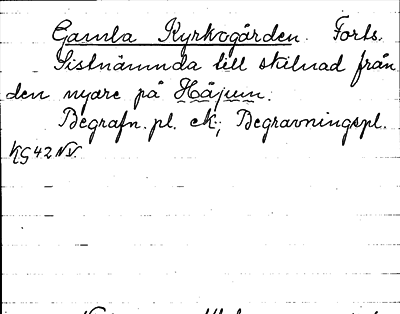 Gamla Kyrkogården. Forts.
Sistnämnda till skilnad från
den nyare på Häjum.
Begrafn. pl. ek; Begravningspl.
KG42NV.